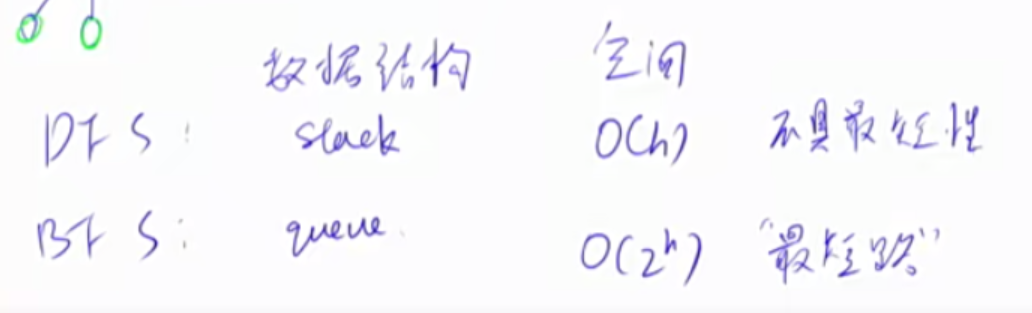 数据结构 空间
DFS: stack O(h) 不具最短性
BFS: queue. O(2^h) "最短路"